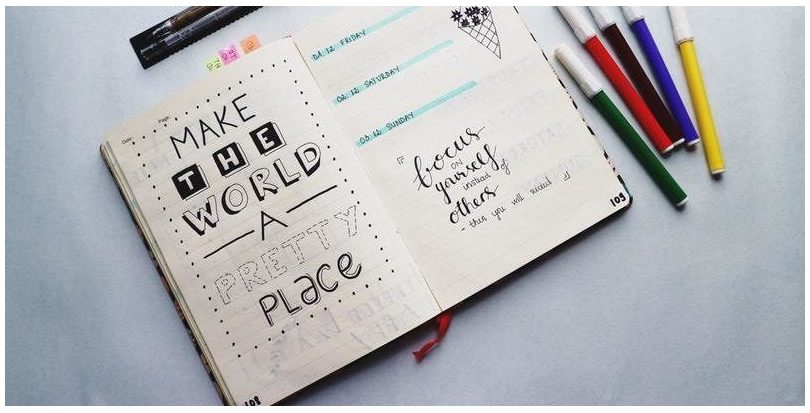 Date: Page:
MAKE
THE
WORLD
A
PRETTY
PLace
108
01.12 FRIDAY
02.12 SATURDAY
03.12 SUNDAY
focus
on
yourself
instead of
others
- then you will succeed
109